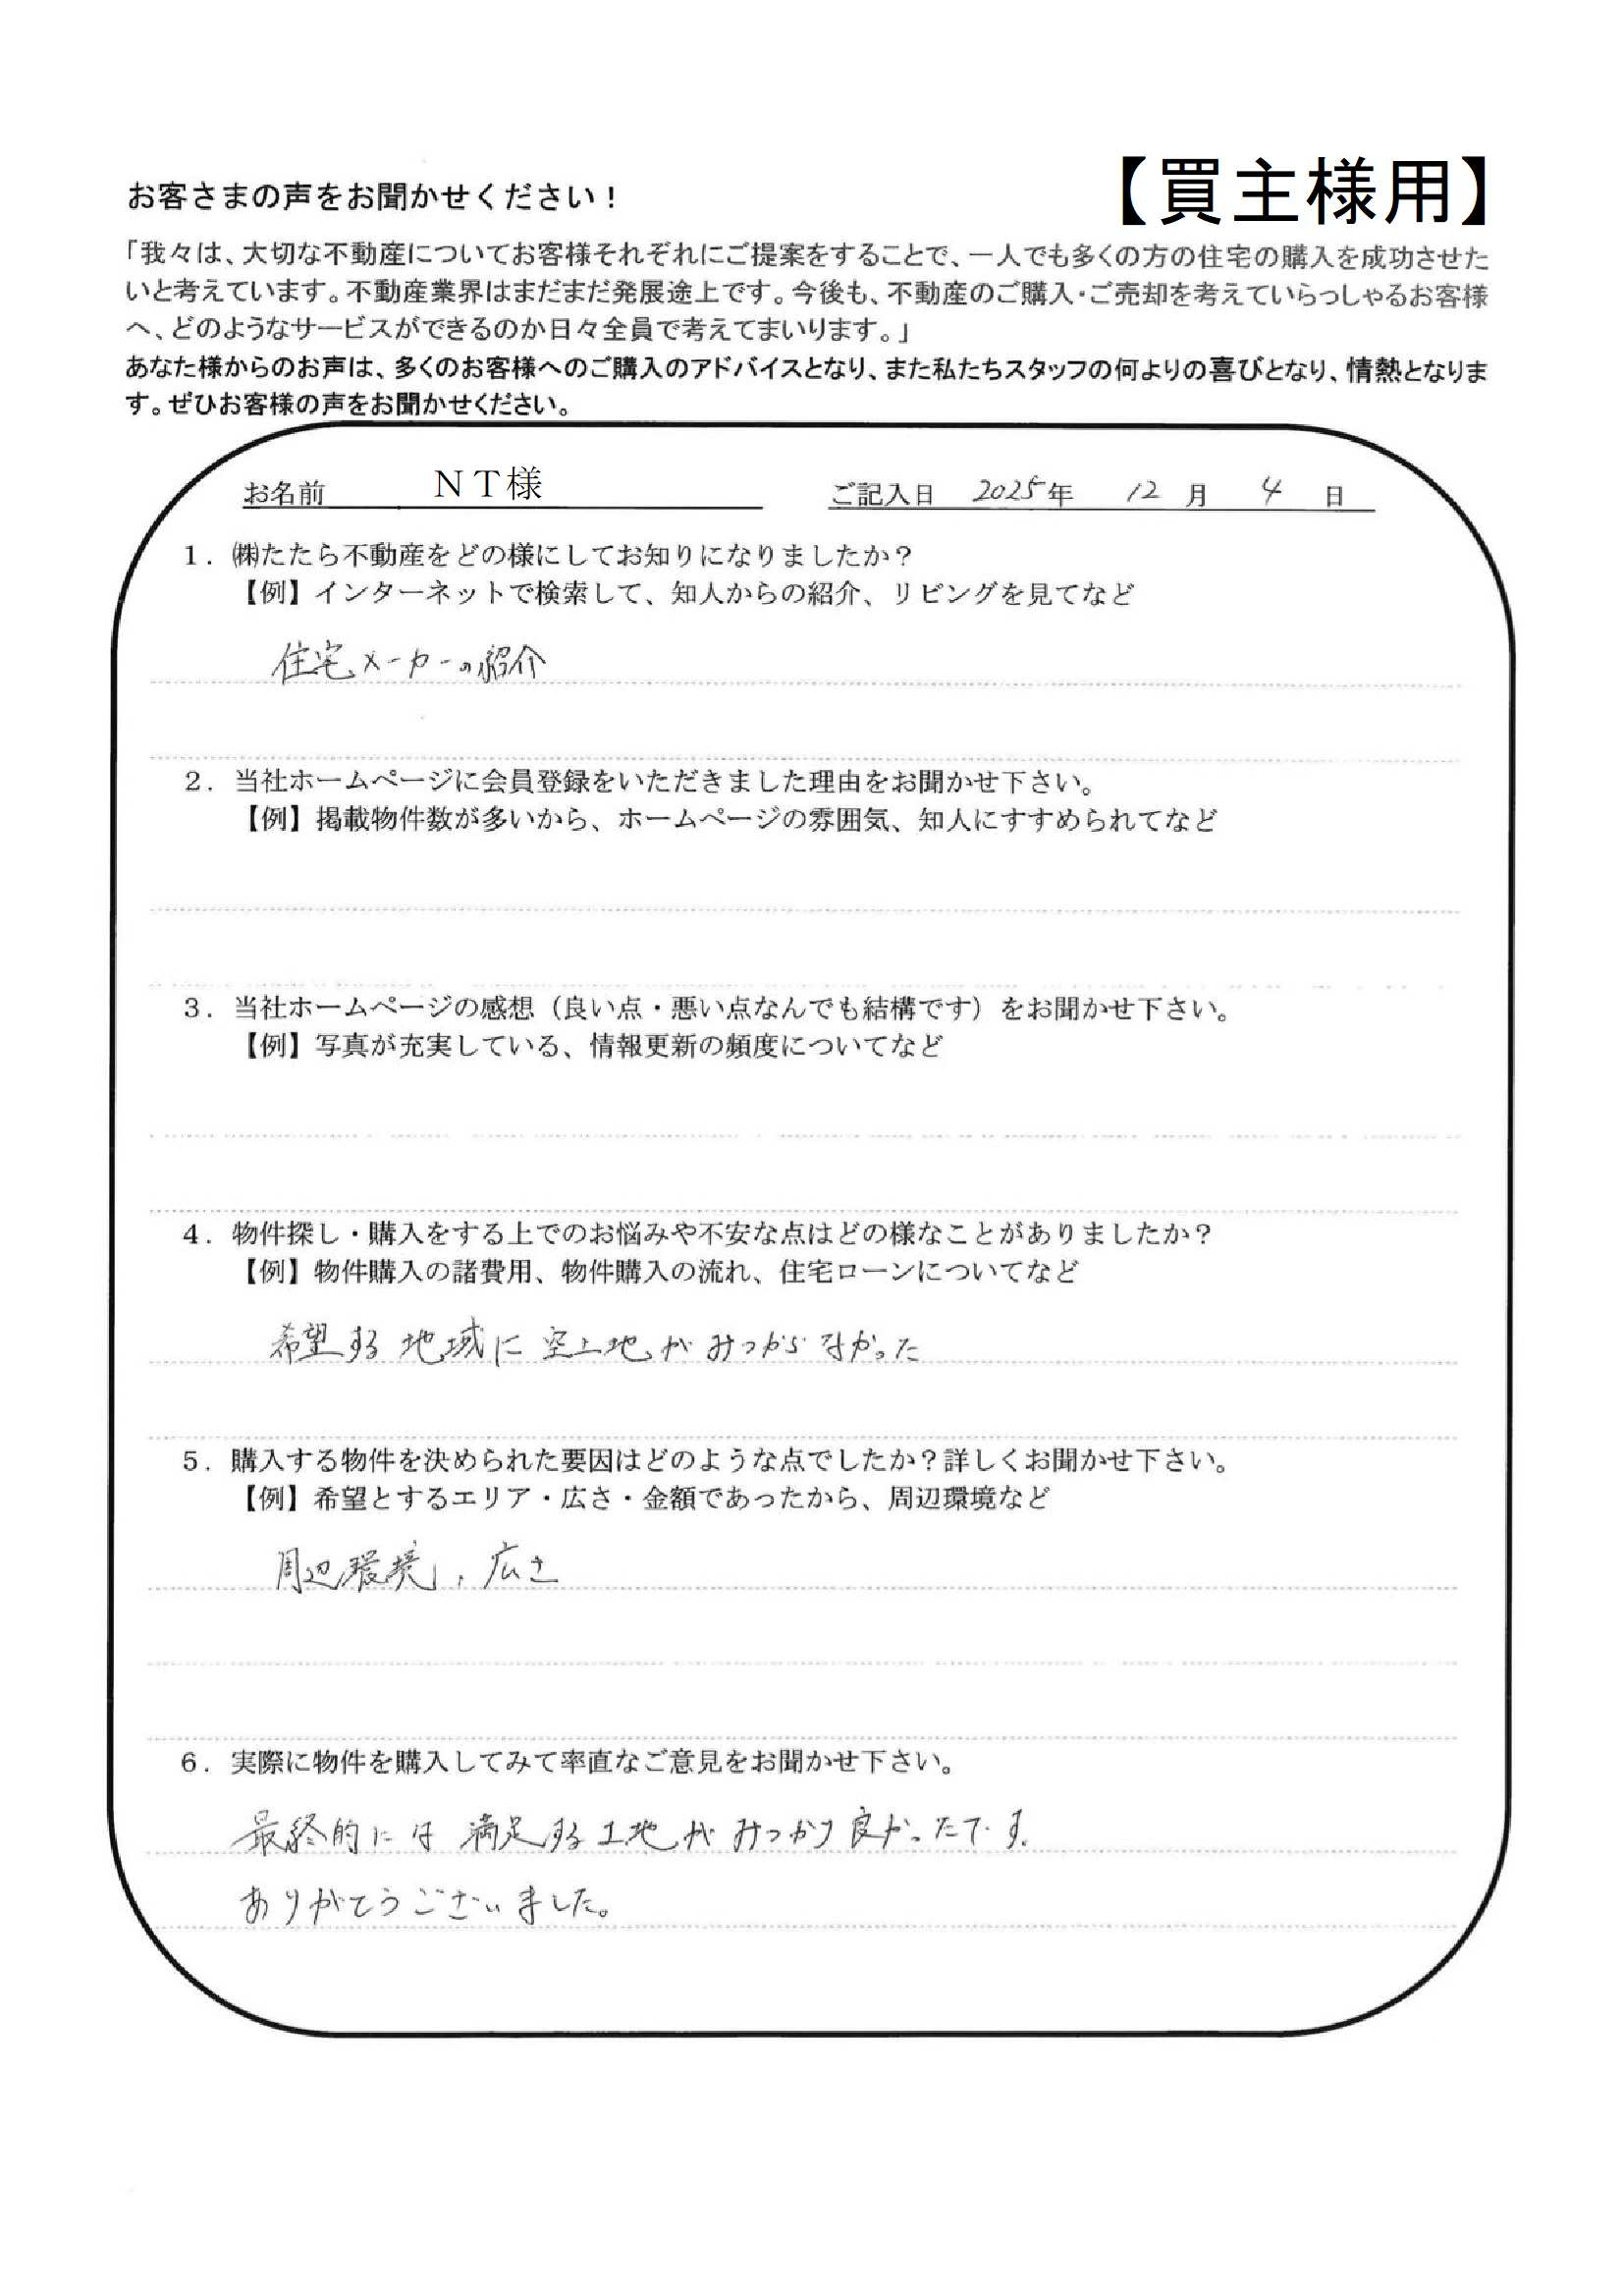 【買主様用】
お客さまの声をお聞かせください！
「我々は、大切な不動産についてお客様それぞれにご提案をすることで、一人でも多くの方の住宅の購入を成功させた
いと考えています。不動産業界はまだまだ発展途上です。今後も、不動産のご購入・ご売却を考えていらっしゃるお客様
へ、どのようなサービスができるのか日々全員で考えてまいります。」
あなた様からのお声は、多くのお客様へのご購入のアドバイスとなり、また私たちスタッフの何よりの喜びとなり、情熱となりま
す。ぜひお客様の声をお聞かせください。
お名前 ＮＴ様 ご記入日 2025年 12月 4日
1．㈱たたら不動産をどの様にしてお知りになりましたか？
【例】インターネットで検索して、知人からの紹介、リビングを見てなど
住宅メーカーの紹介
2．当社ホームページに会員登録をいただきました理由をお聞かせ下さい。
【例】掲載物件数が多いから、ホームページの雰囲気、知人にすすめられてなど
3．当社ホームページの感想（良い点・悪い点なんでも結構です）をお聞かせ下さい。
【例】写真が充実している、情報更新の頻度についてなど
4．物件探し・購入をする上でのお悩みや不安な点はどの様なことがありましたか？
【例】物件購入の諸費用、物件購入の流れ、住宅ローンについてなど
希望する地域に空土地がみつからなかった
5．購入する物件を決められた要因はどのような点でしたか？詳しくお聞かせ下さい。
【例】希望とするエリア・広さ・金額であったから、周辺環境など
周辺環境、広さ
6．実際に物件を購入してみて率直なご意見をお聞かせ下さい。
最終的には満足する土地がみつかり良かったです。
ありがとうございました。